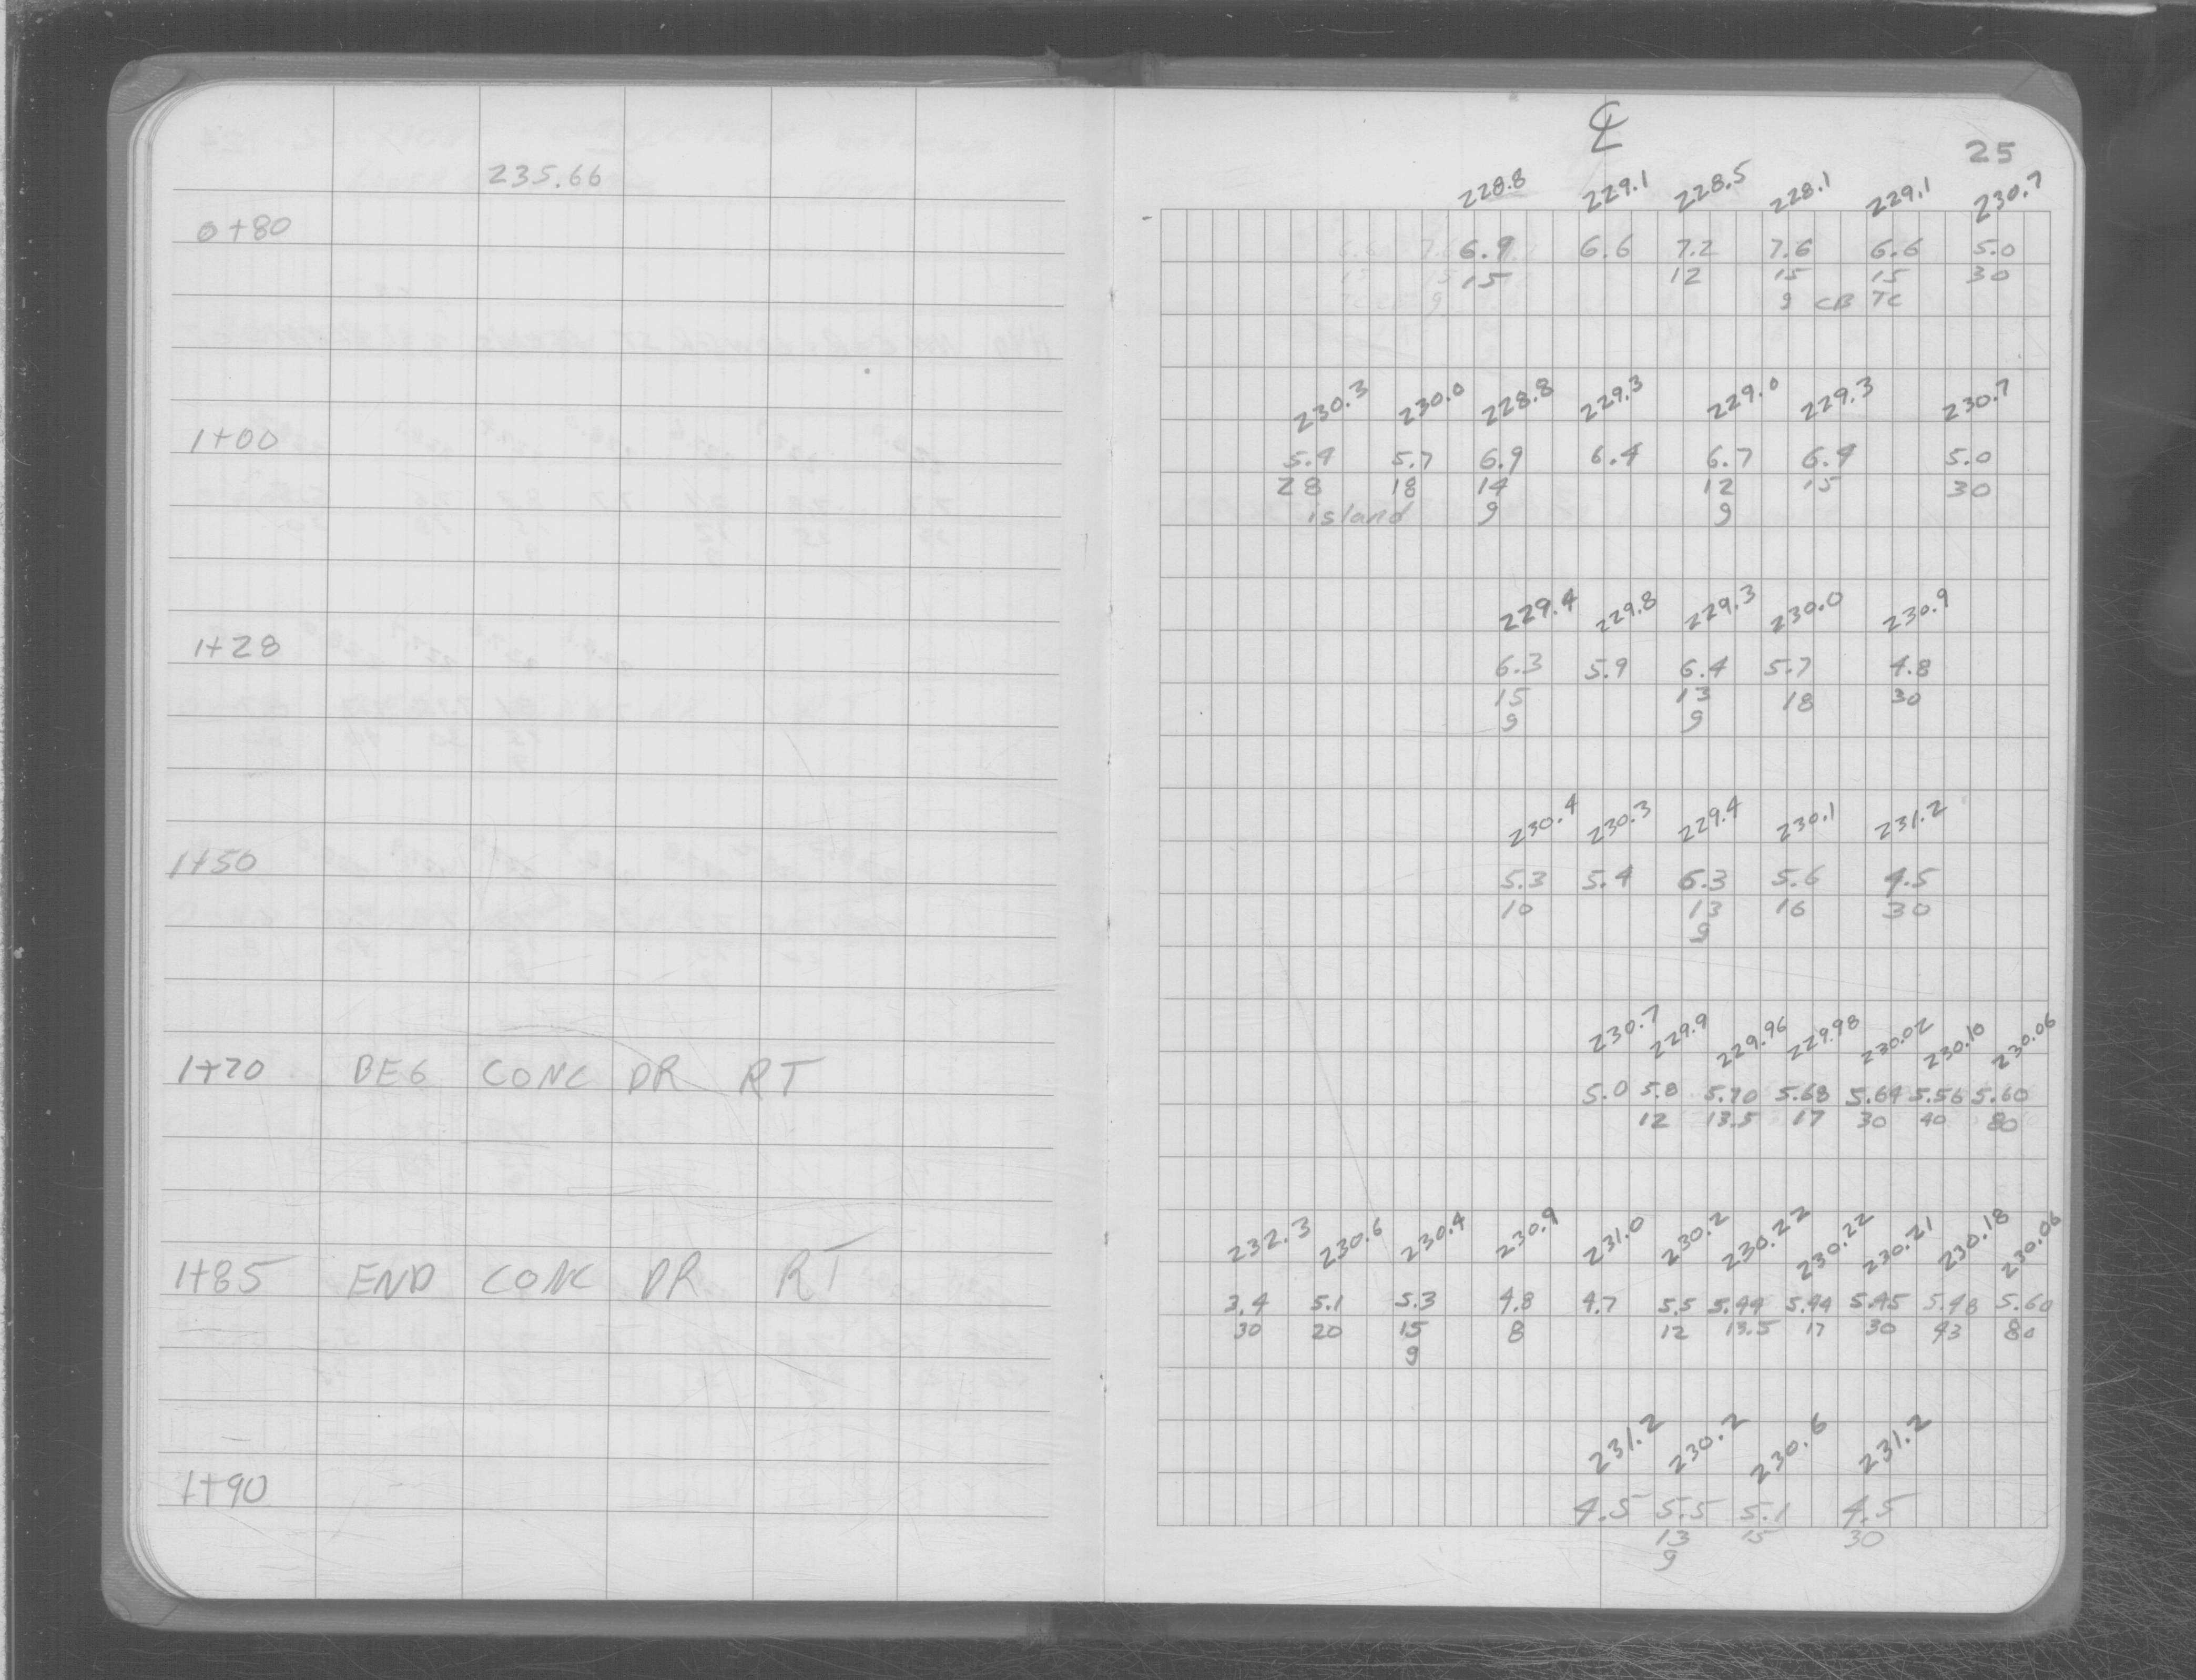 ℄
25
235.66
228.8 229.1 228.5 228.1 229.1 230.7
0+80 6.9 6.6 7.2 7.6 6.6 5.0
15 12 15 15 30
9 CB TC
230.3 230.0 228.8 229.3 229.0 229.3 230.7
1+00 5.4 5.7 6.9 6.4 6.7 6.4 5.0
28 18 14 12 15 30
island 9 9
229.4 229.8 229.3 230.0 230.9
1+28 6.3 5.9 6.4 5.7 4.8
15 13 18 30
9 9
230.4 230.3 229.4 230.1 231.2
1+50 5.3 5.4 6.3 5.6 4.5
10 13 16 30
9
230.7 229.9 229.96 229.98 230.02 230.10 230.06
1+70 BEG CONC DR RT 5.0 5.8 5.70 5.68 5.64 5.56 5.60
12 13.5 17 30 40 80
232.3 230.6 230.4 230.9 231.0 230.2 230.22 230.22 230.21 230.18 230.06
1+85 END CONC DR RT 3.4 5.1 5.3 4.8 4.7 5.5 5.44 5.44 5.45 5.48 5.60
30 20 15 8 12 13.5 17 30 43 80
9
231.2 230.2 230.6 231.2
1+90 4.5 5.5 5.1 4.5
13 15 30
9